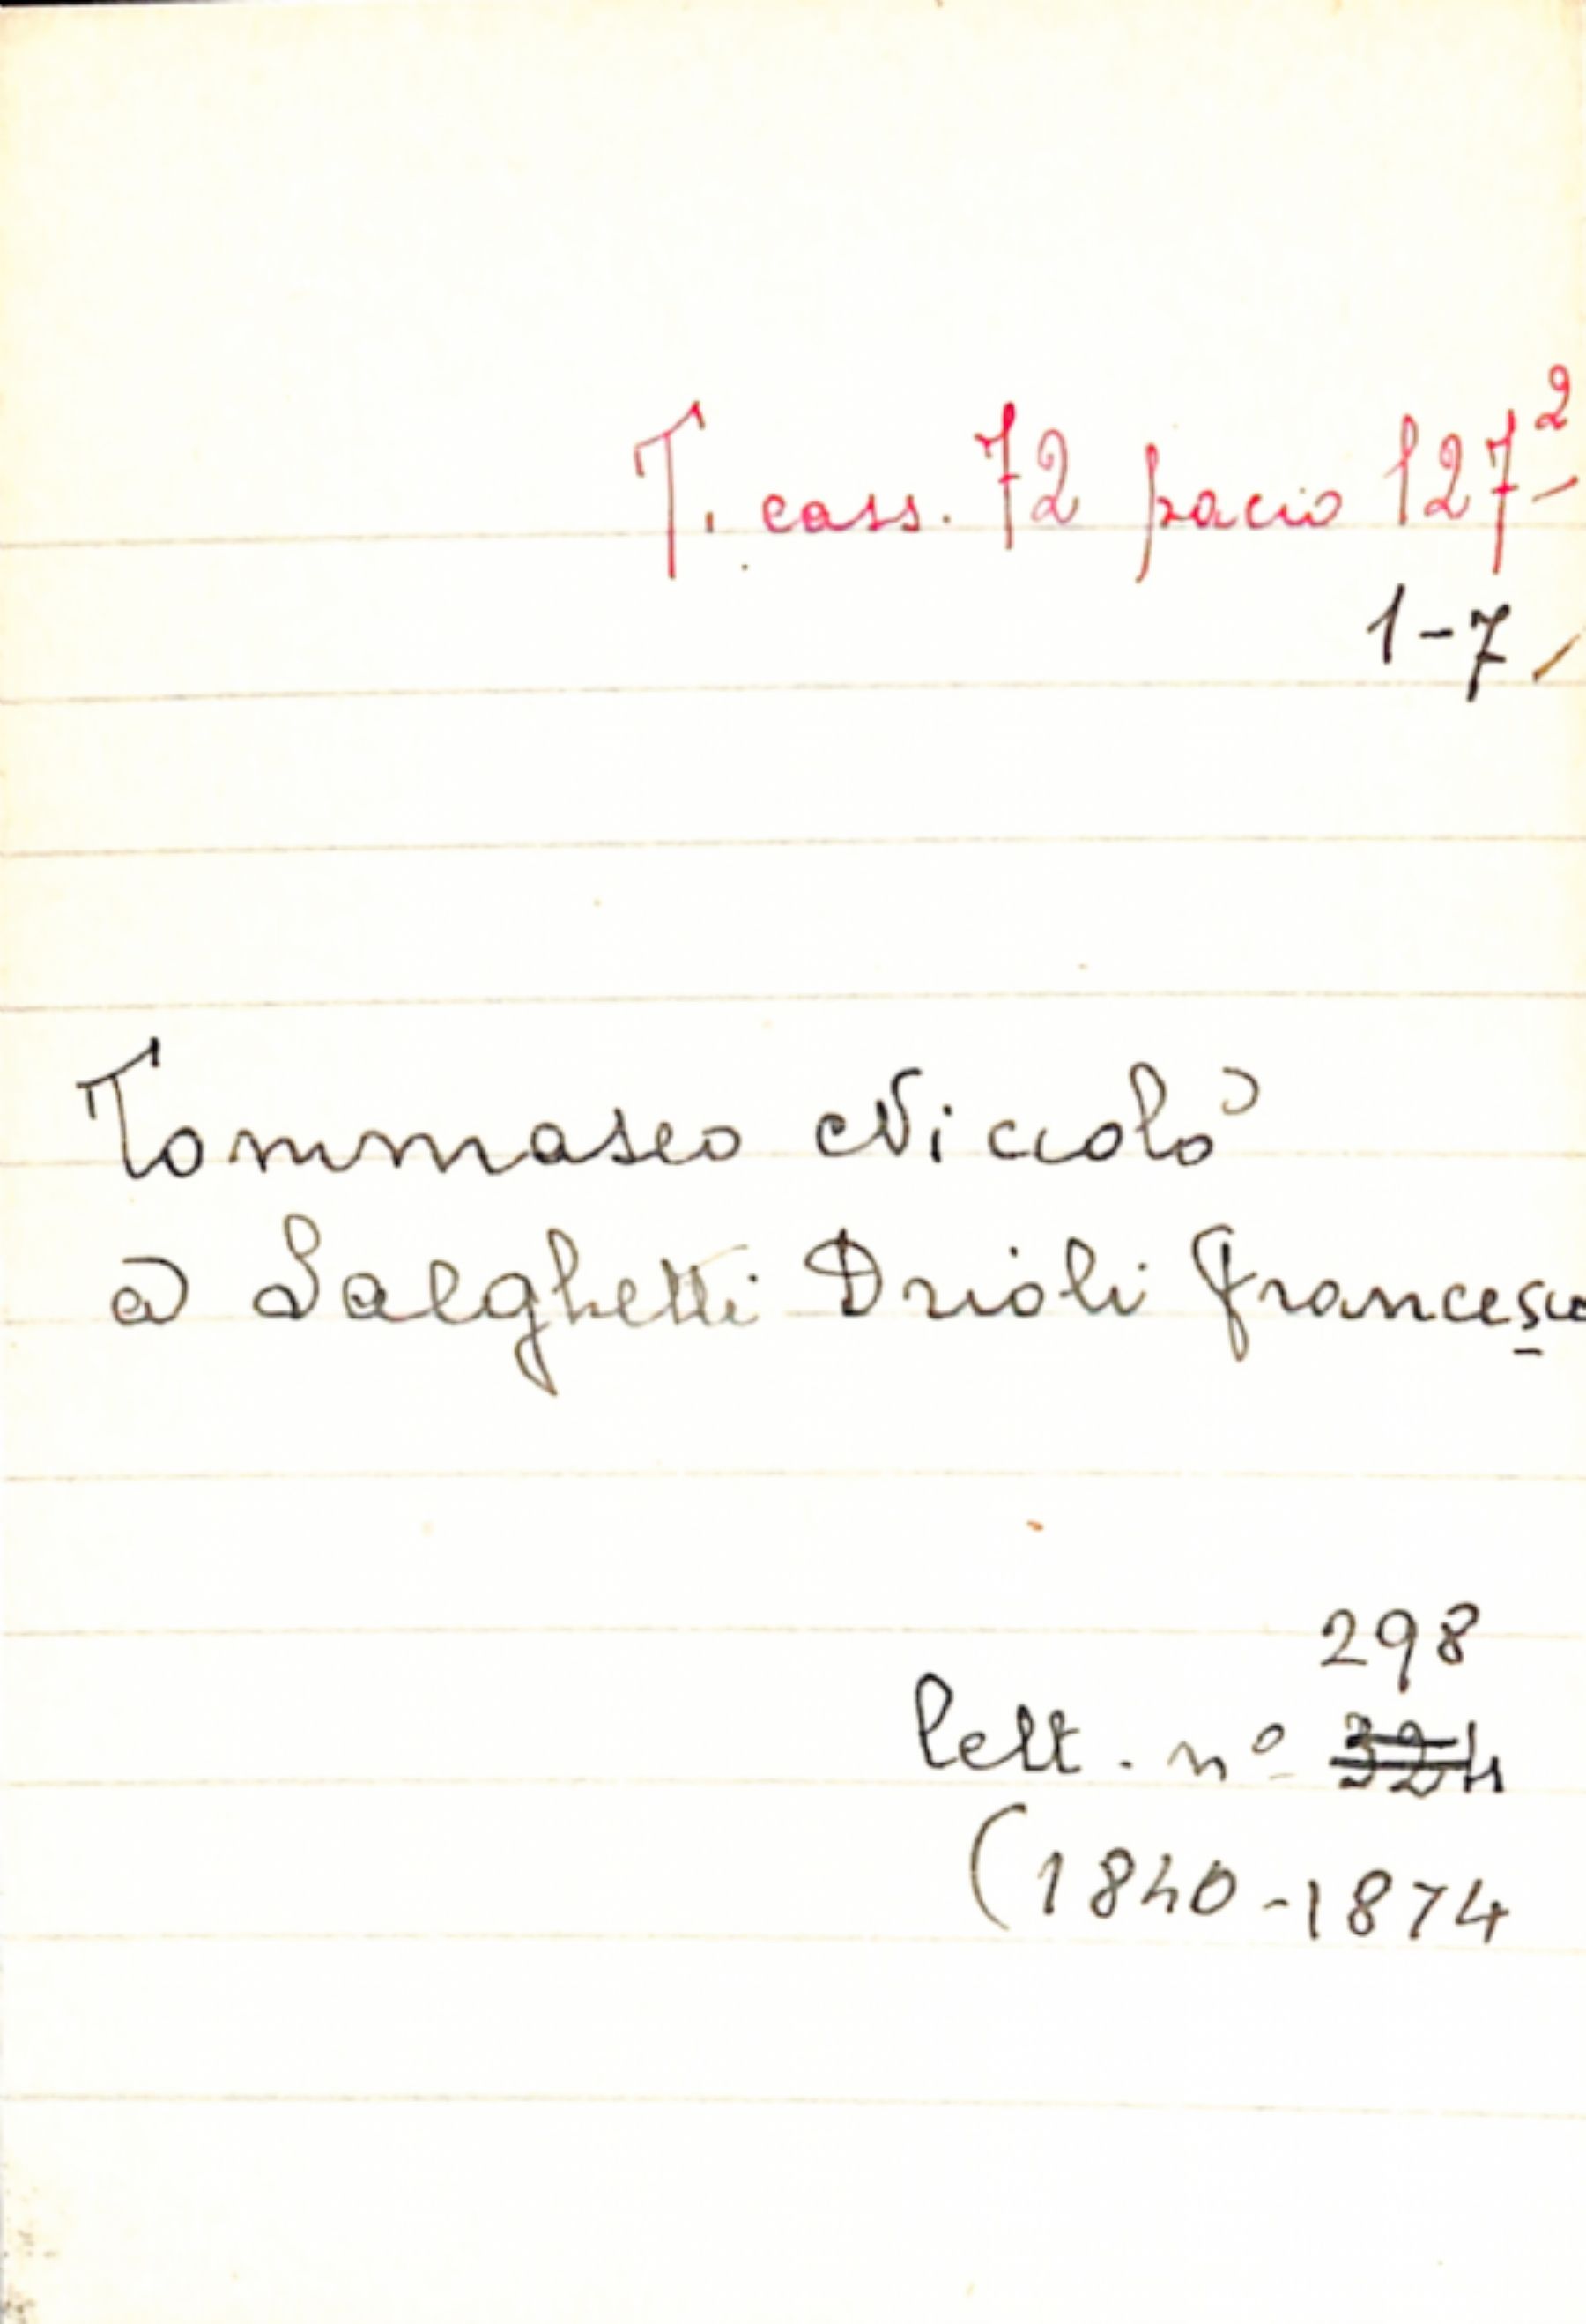 T. cass. 72 pacco 127²
1-7
Tommaseo Niccolò
a Salghetti Drioli Francesco
298
lett. n° 324
(1840-1874